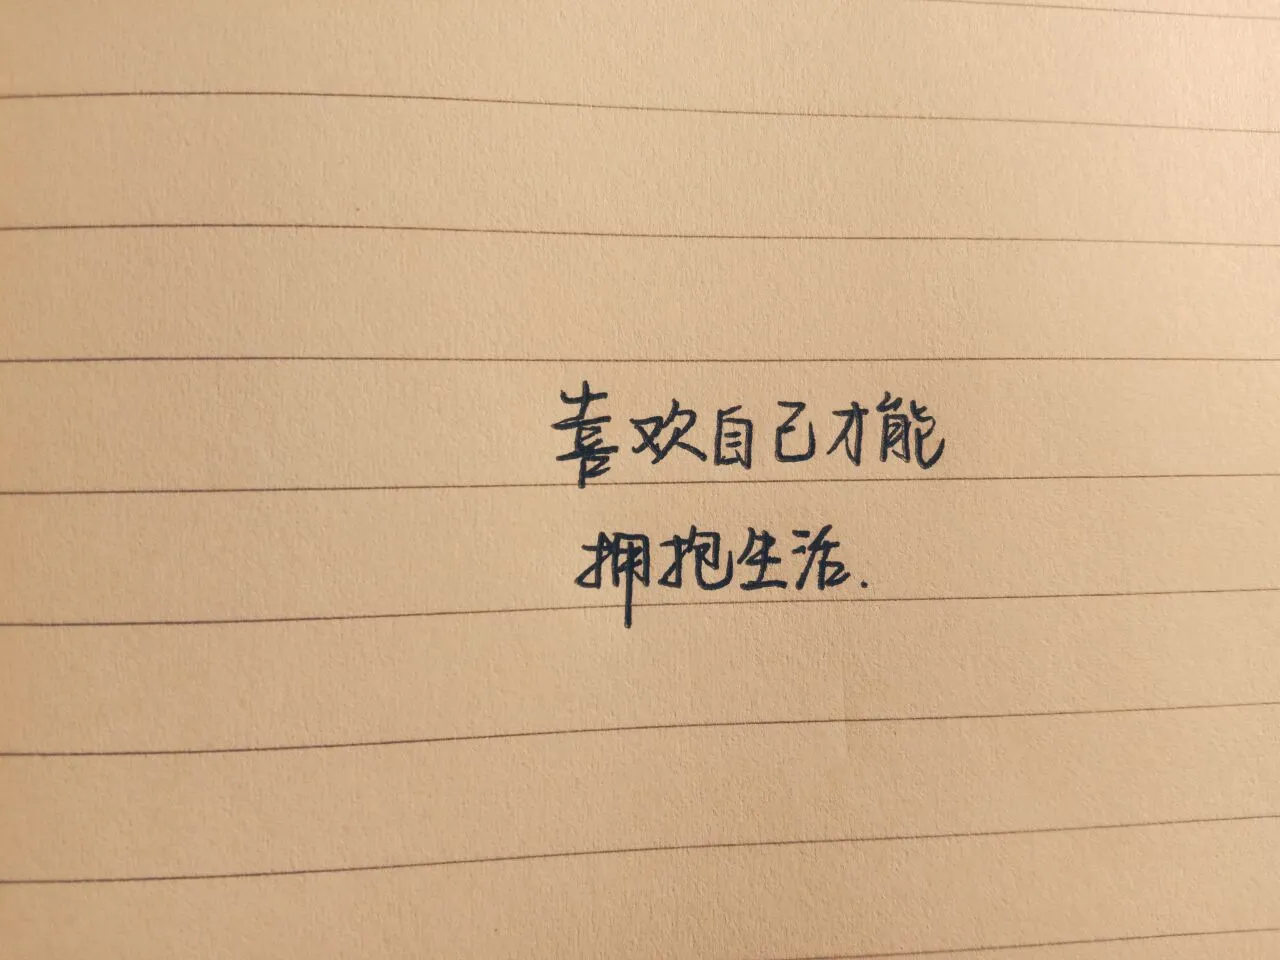 喜欢自己才能
拥抱生活.